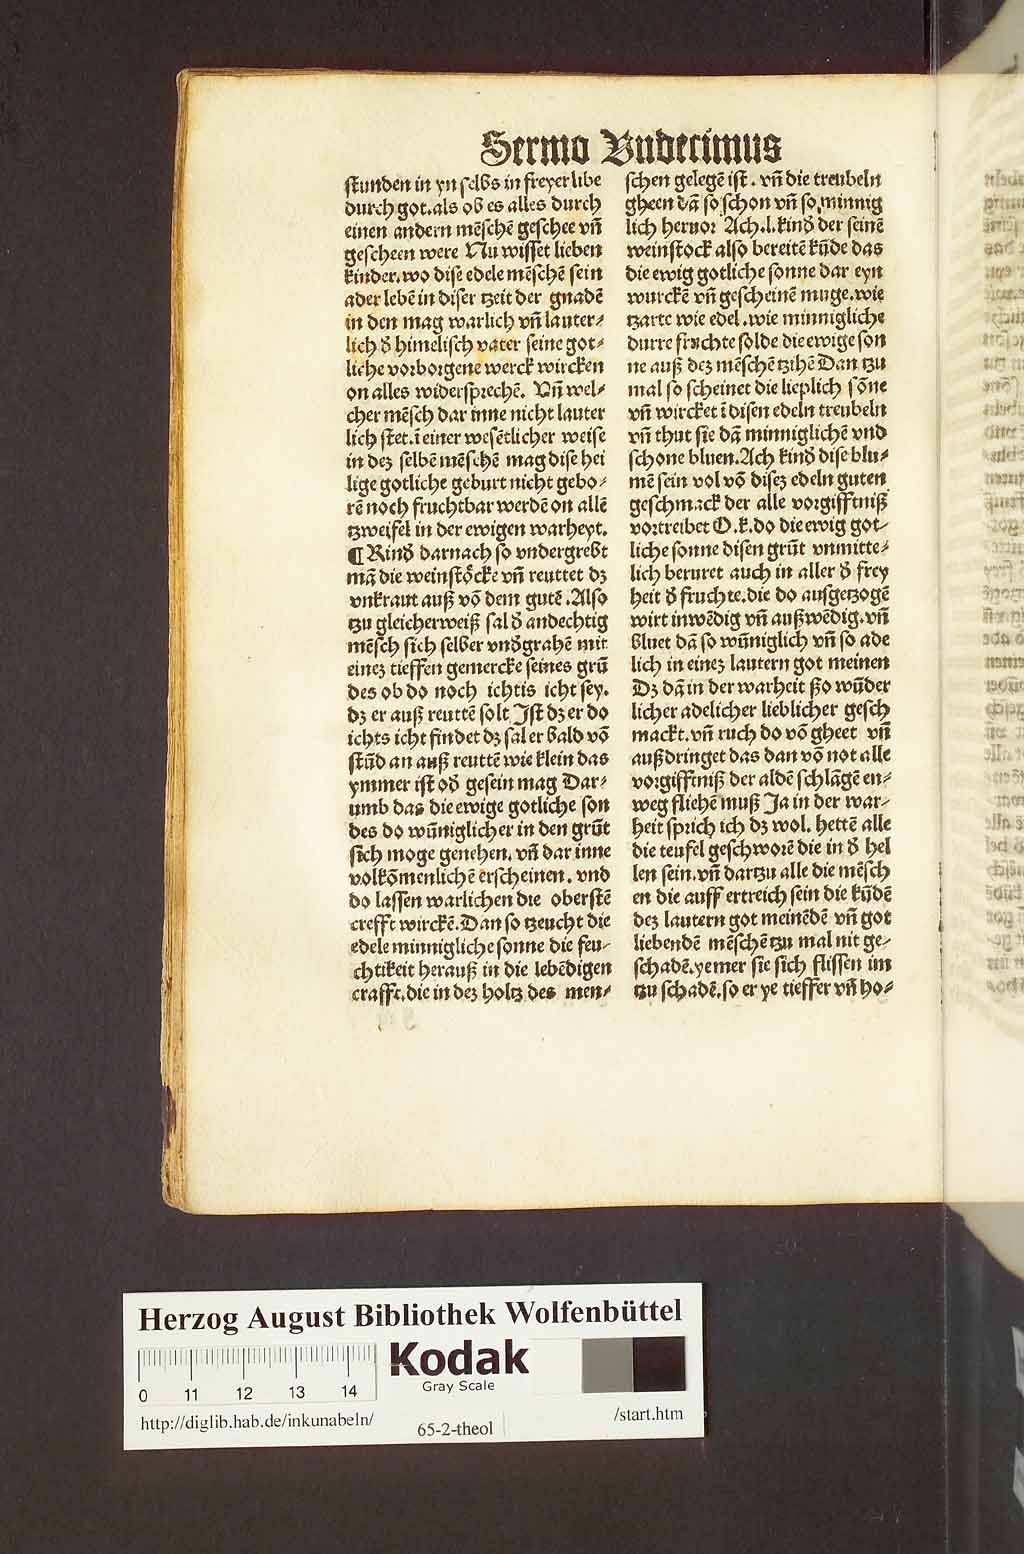 Sermo Vndecimus
stunden in yn selbs in freyer libe
durch got. als ob es alles durch
einen andern mēschē geschee vn̄
gescheen were Nu wisset lieben
kinder. wo dise edele mēschē sein
ader lebē in diser tzeit der gnadē
in den mag warlich vn̄ lauter⸗
lich d̄ himelisch vater seine got⸗
liche vorborgene werck wircken
on alles widersprechē. Vn̄ wel⸗
cher mēsch dar inne nicht lauter
lich stet. ī einer wesētlicher weise
in dez selbē mēschē mag dise hei
lige gotliche geburt nicht gebo⸗
rē noch fruchtbar werdē on allē
tzweifel in der ewigen warheyt.
¶ Kind̄ darnach so vndergrebt
mā die weinstöcke vn̄ reuttet dz
vnkraut auß vō dem gutē. Also
tzu gleicherweiß sal d̄ andechtig
mēsch sich selber vnd̄grahē mit
einez tieffen gemercke seines grū
des ob do noch ichtis icht sey.
dz er auß reuttē solt Ist dz er do
ichts icht findet dz sal er bald vō
stūd an auß reuttē wie klein das
ymmer ist od̄ gesein mag Dar⸗
umb das die ewige gotliche son
des do wūniglicher in den grūt
sich moge genehen. vn̄ dar inne
volkōmenlichē erscheinen. vnd
do lassen warlichen die oberstē
crefft wirckē. Dan so tzeucht die
edele minnigliche sonne die feu⸗
chtikeit herauß in die lebēdigen
crafft. die in dez holtz des men⸗
schen gelegē ist. vn̄ die treubeln
gheen dā so schon vn̄ so minnig
lich heruor Ach. l. kind̄ der seinē
weinstock also bereitē kūde das
die ewig gotliche sonne dar eyn
wurckē vn̄ gescheinē muge. wie
tzarte wie edel. wie minnigliche
durre fruchte solde die ewige son
ne auß dez mēschē tzihē Dan tzu
mal so scheinet die lieplich sōne
vn̄ wircket ī disen edeln treubeln
vn̄ thut sie dā minniglichē vnd
schone bluen. Ach kind̄ dise blu⸗
mē sein vol vō disez edeln guten
geschmack der alle vorgifftniß
vortreibet O. k. do die ewig got⸗
liche sonne disen grūt vnmitte⸗
lich beruret auch in aller d̄ frey
heit d̄ fruchte. die do ausgetzogē
wirt inwēdig vn̄ außwēdig. vn̄
bluet dā so wūniglich vn̄ so ade
lich in einez lautern got meinen
Dz dā in der warheit ßo wūder
licher adelicher lieblicher gesch
mackt. vn̄ ruch do vō gheet vn̄
außdringet das dan vō not alle
vorgiffniß der aldē schlāgē en⸗
weg fliehē muß Ja in der war⸗
heit sprich ich dz wol. hettē alle
die teufel geschworē die in d̄ hel
len sein. vn̄ dartzu alle die mēsch
en die auff ertreich sein die kūdē
dez lautern got meinēdē vn̄ got
liebendē mēschē tzu mal nit ge⸗
schadē. ye mer sie sich flissen im
tzu schadē. so er ye tieffer vn̄ ho⸗
Herzog August Bibliothek Wolfenbüttel
Kodak
Gray Scale
0 11 12 13 14
http://diglib.hab.de/inkunabeln/
65-2-theol
/start.htm